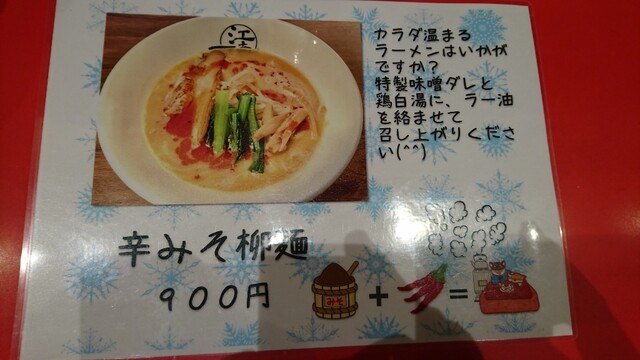 江
カラダ温まる
ラーメンはいかが
ですか?
特製味噌ダレと
鶏白湯に、ラー油
を絡ませて
召し上がりくださ
い(^^)
辛みそ柳麺
900円
みそ
+
=